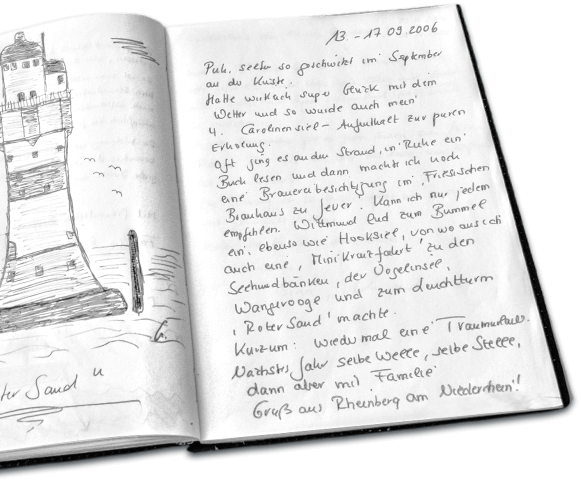 ter Sand "
13 - 17.09.2006
Puh, selten so geschwitzt im September
an der Küste.
Hatte wirklich super Glück mit dem
Wetter und so wurde auch mein
4. Carolinensiel-Aufenthalt zur puren
Erholung.
Oft ging es an den Strand, in Ruhe ein
Buch lesen und dann machte ich noch
eine Brauereibesichtigung im 'Friesischen
Brauhaus zu Jever'. Kann ich nur jedem
empfehlen. Wittmund lud zum Bummel
ein, ebenso wie Hooksiel, von wo aus ich
auch eine 'Mini Kreuzfahrt' zu den
Seehundbänken, der Vogelinsel,
Wangerooge und zum Leuchtturm
'Roter Sand' machte.
Kurzum: Wieder mal eine Traumurlaub.
Nächstes Jahr selbe Welle, selbe Stelle,
dann aber mit Familie
Gruß aus Rheinberg am Niederrhein!!